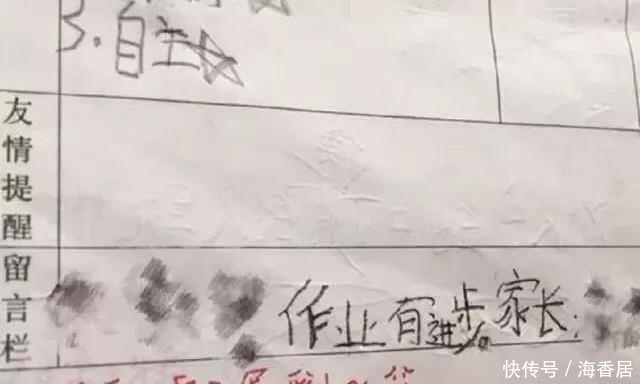 3.自主
友情提醒
留言栏
作业有进步。家长:
快传号/海香居